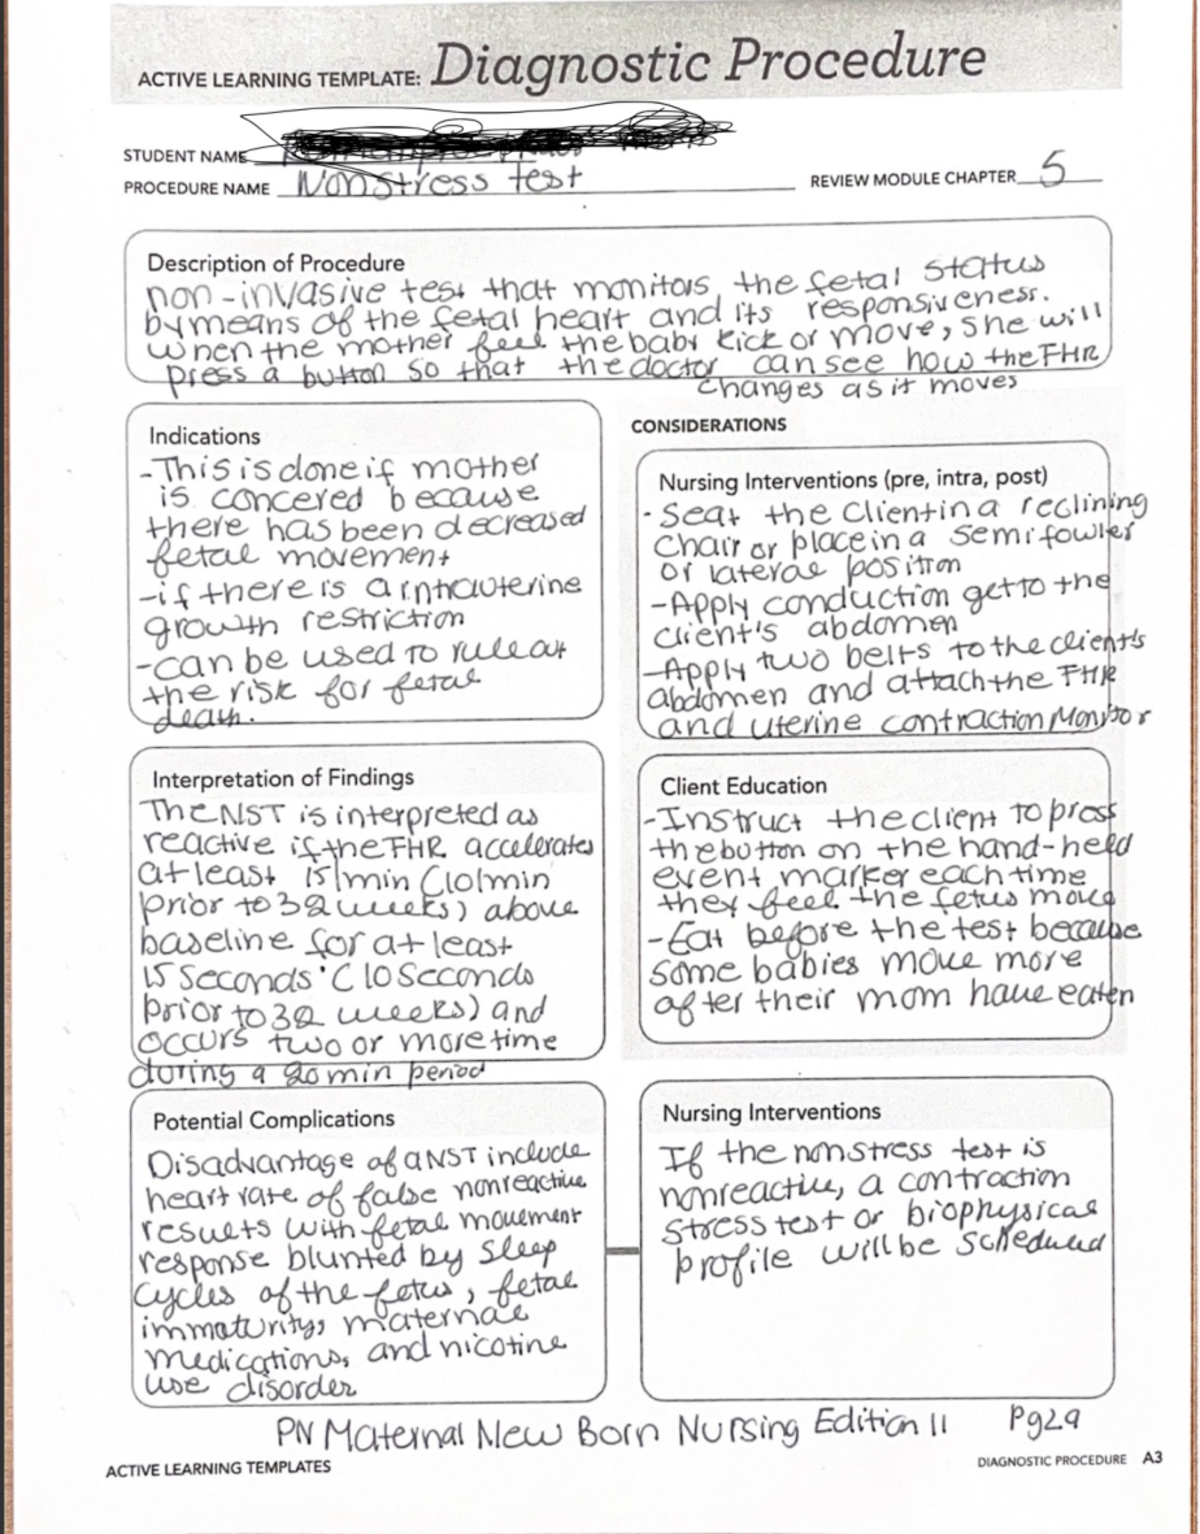 ACTIVE LEARNING TEMPLATE: Diagnostic Procedure
STUDENT NAME
PROCEDURE NAME Nonstress test REVIEW MODULE CHAPTER 5
Description of Procedure
non-invasive test that monitors the fetal status
by means of the fetal heart and its responsiveness.
when the mother feel the baby kick or move, she will
press a button so that the doctor can see how the FHR
changes as it moves
Indications
- This is done if mother
is concered because
there has been decreased
fetal movement
- if there is a intrauterine
growth restriction
- can be used to rule out
the risk for fetal
death.
CONSIDERATIONS
Nursing Interventions (pre, intra, post)
- Seat the client in a reclining
chair or place in a semifowler
or lateral position
- Apply conduction get to the
client's abdomen
- Apply two belts to the client's
abdomen and attach the FHR
and uterine contraction Monitor
Interpretation of Findings
The NST is interpreted as
reactive if the FHR accelerates
at least 15/min (10/min
prior to 32 weeks) above
baseline for at least
15 seconds (10 seconds
prior to 32 weeks) and
occurs two or more time
during a 20 min period
Client Education
- Instruct the client to press
the button on the hand-held
event marker each time
they feel the fetus move
- Eat before the test because
some babies move more
after their mom have eaten
Potential Complications
Disadvantage of a NST include
heart rate of false nonreactive
results with fetal movement
response blunted by sleep
cycles of the fetus, fetal
immaturity, maternal
medications, and nicotine
use disorder
Nursing Interventions
If the nonstress test is
nonreactive, a contraction
stress test or biophysical
profile will be scheduled
PN Maternal New Born Nursing Edition 11 Pg 29
ACTIVE LEARNING TEMPLATES DIAGNOSTIC PROCEDURE A3